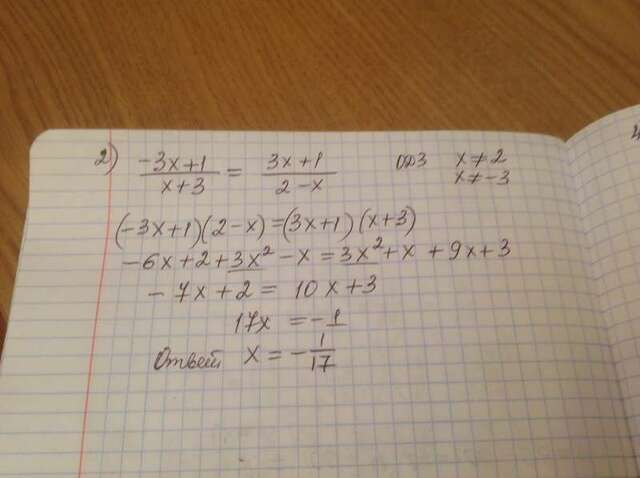 2) (-3x+1)/(x+3) = (3x+1)/(2-x) ОДЗ x≠2
x≠-3
(-3x+1)(2-x)=(3x+1)(x+3)
-6x+2+3x²-x=3x²+x+9x+3
-7x+2=10x+3
17x=-1
Ответ x=-1/17